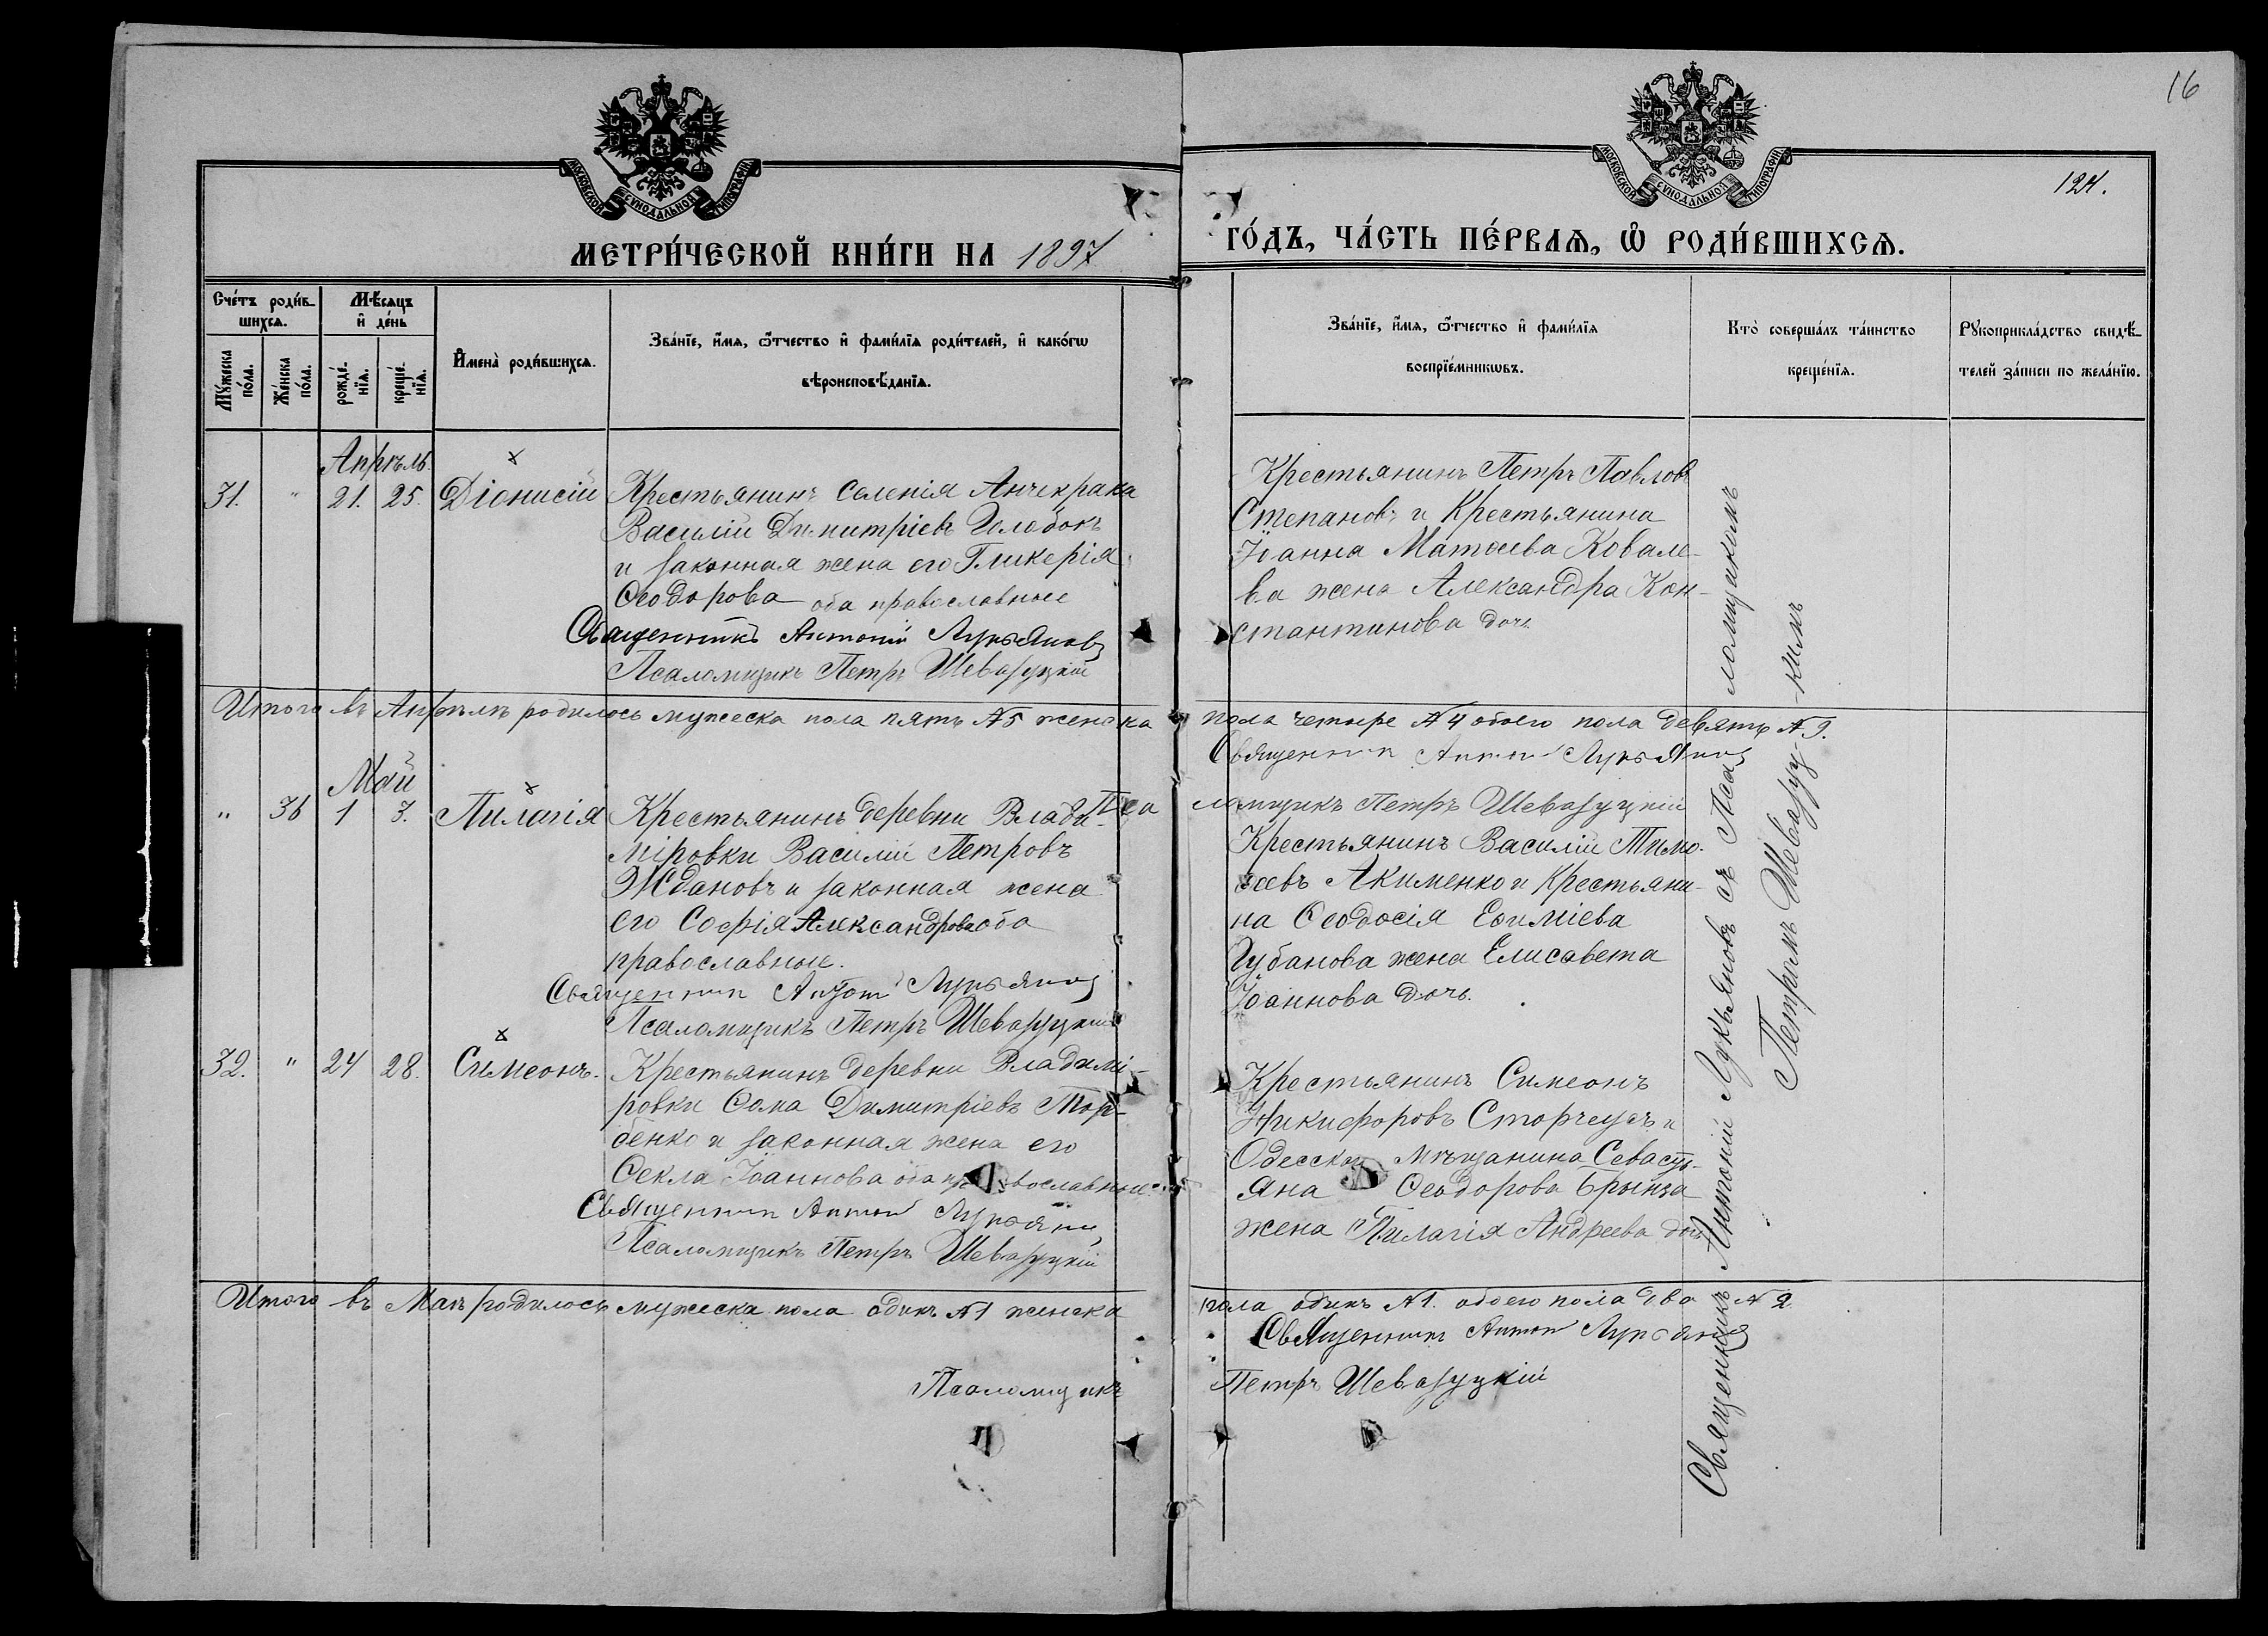 16
124.
МОСКОВСКОЙ СѴНОДАЛЬНОЙ ТИПОГРАФІИ
МОСКОВСКОЙ СѴНОДАЛЬНОЙ ТИПОГРАФІИ
МЕТРИ́ЧЕСКОЙ КНИ́ГИ НА 1897 ГО́ДЪ, ЧА́СТЬ ПЕ́РВАѦ, Ѡ҆ РОДИ́ВШИХСѦ.
Сче́тъ роди́вшихсѧ.
Мꙋ́жеска по́ла.
Же́нска по́ла.
Мѣ́сѧцъ и҆ де́нь
рожде́нїѧ.
креще́нїѧ.
И҆мена̀ роди́вшихсѧ.
Зва́нїе, и҆́мѧ, ѻ҆́тчество и҆ фами́лїѧ роди́телей, и҆ како́гѡ
вѣроисповѣ́данїѧ.
Зва́нїе, и҆́мѧ, ѻ҆́тчество и҆ фами́лїѧ
воспрїе́мникѡвъ.
Кто̀ соверша́лъ та́инство
креще́нїѧ.
Рꙋкоприкла́дство свидѣ́-
телей за́писи по жела́нїю.
Апрѣль
31. " 21. 25. Діонисій
Крестьянинъ селенія Анчекрака
Василій Димитріевъ Голобокъ
и законная жена его Гликерія
Ѳеодорова оба православные
Священникъ Антоній Лукьяновъ
Псаломщикъ Петръ Шевазуцкій
Крестьянинъ Петръ Павловъ
Степановъ и Крестьянина
Іоанна Матѳеева Ковале-
ва жена Александра Кон-
стантинова дочь
Итого въ Апрѣлѣ родилось мужеска пола пять №5 женска пола четыре №4 обоего пола девять №9.
Священник Антоній Лукьянов
Псаломщикъ Петръ Шевазуцкій
Май
" 36 1 3. Пилагія
Крестьянинъ деревни Влади-
міровки Василій Петровъ
Ждановъ и законная жена
его Софія Александрова оба
православные.
Священник Антоній Лукьянов
Псаломщикъ Петръ Шевазуцкій
Крестьянинъ Василій Тимо-
ѳеевъ Акименко и Крестьяни-
на Ѳеодосія Еѳиміева
Губанова жена Елисавета
Іоаннова дочь.
32. " 24 28. Симеонъ.
Крестьянинъ деревни Владимі-
ровки Ѳома Димитріевъ Тор-
бенко и законная жена его
Ѳекла Іоаннова оба православные
Священник Антоній Лукьянов
Псаломщикъ Петръ Шевазуцкій
Крестьянинъ Симеонъ
Никифоровъ Сторчеусъ и
Одесскаго мѣщанина Севасть-
яна Ѳеодорова Брынза
жена Пилагія Андреева дочь
Итого въ Маѣ родилось мужеска пола одинъ №1 женска пола одинъ №1. обоего пола два №2
Священник Антоній Лукьянов
Псаломщикъ Петръ Шевазуцкій
Священникъ Антоній Лукьяновъ съ Псаломщикомъ
Петромъ Шевазуцкимъ